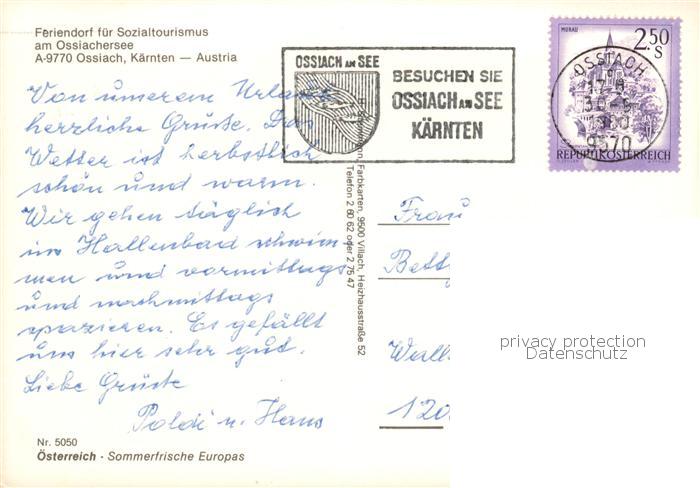 Feriendorf für Sozialtourismus
am Ossiachersee
A-9770 Ossiach, Kärnten — Austria
Von unserem Urlaub
herzliche Grüße. Das
Wetter ist herbstlich
schön und warm.
Wir gehen täglich
ins Hallenbad schwim-
men und vormittags
und nachmittags
spazieren. Es gefällt
uns hier sehr gut.
Liebe Grüße
Poldi u. Hans
Nr. 5050
Österreich - Sommerfrische Europas
OSSIACH AM SEE
BESUCHEN SIE
OSSIACH AM SEE
KÄRNTEN
MURAU
2.50
S
REPUBLIK ÖSTERREICH
OSSIACH
1980
9570
Farbkarten, 9500 Villach, Heizhausstraße 52
Telefon 2 60 62 oder 2 75 47
Frau
Bett
Wall
120
privacy protection
Datenschutz